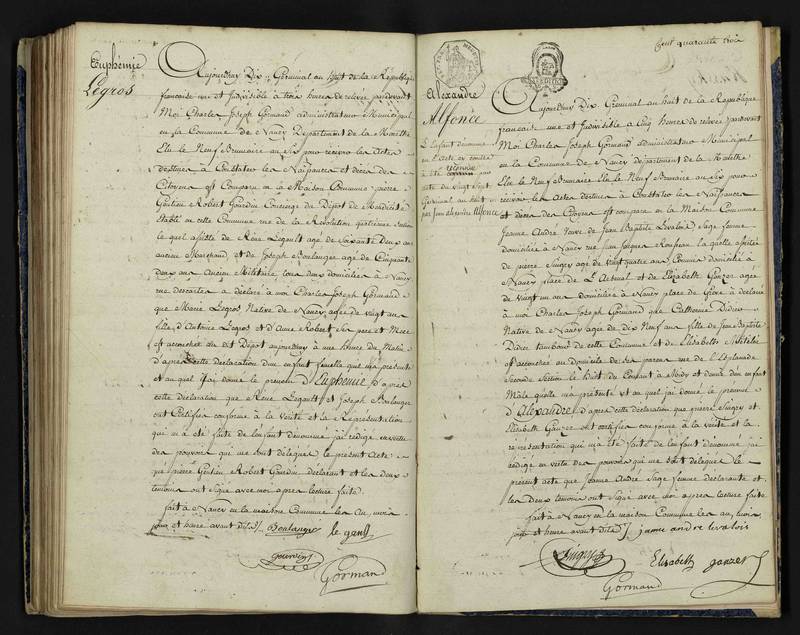 Euphémie
Legros
Aujourdhuy Dix Germinal au huit de la République
francoise une et Indivisible à trois heures de relevée pardevant
Moi Charles Joseph Gormand administrateur Municipal
en la Commune de Nancy Département de la Meurthe
Elu le Neuf Brumaire an Six pour recevoir les Actes
destinés à Constater les Naissances et décès des
Citoyens est Comparu en la Maison Commune pierre
Gentien Robert Gourdin Concierge du Dépot de Mendicité
établi en cette Commune rue de la Révolution quatrieme Section
le quel assisté de Rène Legault agé de Soixante Deux ans
ancien Marchand et de Joseph Boulanger agé de Cinquante
deux ans Ancien Militaire tous deux domiciliés à Nancy
rue descartes à déclaré à moi Charles Joseph Gormand
que Marie Legros Native de Nancy agée de vingt ans
fille d'Antoine Legros et d'Anne Robert Ses pere et Mere
est accouchée au dit Dépot aujourdhuy à une heure du Matin
d'après cette declaration d'un enfant femelle qui m'a présenté
et au quel j'ai donné le prenom d'Euphemie d'après
cette déclaration que Rène Legault et Joseph Boulanger
ont Certifiée conforme à la Vérité et la Représentation
qui m'a été faite de l'enfant denommé j'ai rédigé en vertu
des pouvoirs qui me sont délegués le présent Acte
que pierre Gentien Robert Gourdin déclarant et les deux
temoins ont Signé avec moi apres lecture faite
fait à Nancy en la maison Commune les an, mois
jour et heure avant dits Boulanger le gault
gourdin
Gorman
Cent quarante trois
Alexandre
Alfonce
L'enfant denommé
en l'acte cy contre
à été reconnu par
acte du vingt sept
Germinal an huit
par Jean Alfonce
Aujourdhuy Dix Germinal au huit de la République
francaise une et Indivisible à Cinq heures de relevée pardevant
Moi Charles Joseph Gormand administrateur Municipal
en la Commune de Nancy département de la Meurthe
Elu le Neuf Brumaire an Six pour
recevoir les Actes destinés à Constater les Naissances
et décès des Citoyens est comparue en la Maison Commune
Jeanne André Veuve de Jean Baptiste Levalois Sage femme
domiciliée à Nancy rue Jean Jacques Rousseau la quelle assistée
de pierre Singry agé de vingt quatre ans Commis domicilié à
Nancy place de L'Arsenal et de Elizabeth Ganzer agée
de vingt un ans domiciliée à Nancy place de Greve à déclaré
à moi Charles Joseph Gormand que Catherine Didier
Native de Nancy agée de dix Neuf ans fille de Jean Baptiste
Didier tambour de cette Commune et de Elisabeth
est accouchée au domicile de ses parens rue de l'Esplanade
Seconde Section le huit du Courant à Midy et demi d'un enfant
Male quelle m'a présenté et au quel j'ai donné le prenom
d'Alexandre d'apres cette déclaration que pierre Singry et
Elizabeth Ganzer ont certifiée conforme à la vérité et la
représentation qui m'a été faite de l'enfant dénommé j'ai
rédigé en vertu des pouvoirs qui me sont délegués le
présent acte que Jeanne André Sage femme déclarante et
les Deux temoins ont Signé avec moi après lecture faite
fait à Nancy en la maison Commune les an, mois
jour et heure avant dits jeanne andre levalois
Singry
Elisabeth ganzer
Gormand